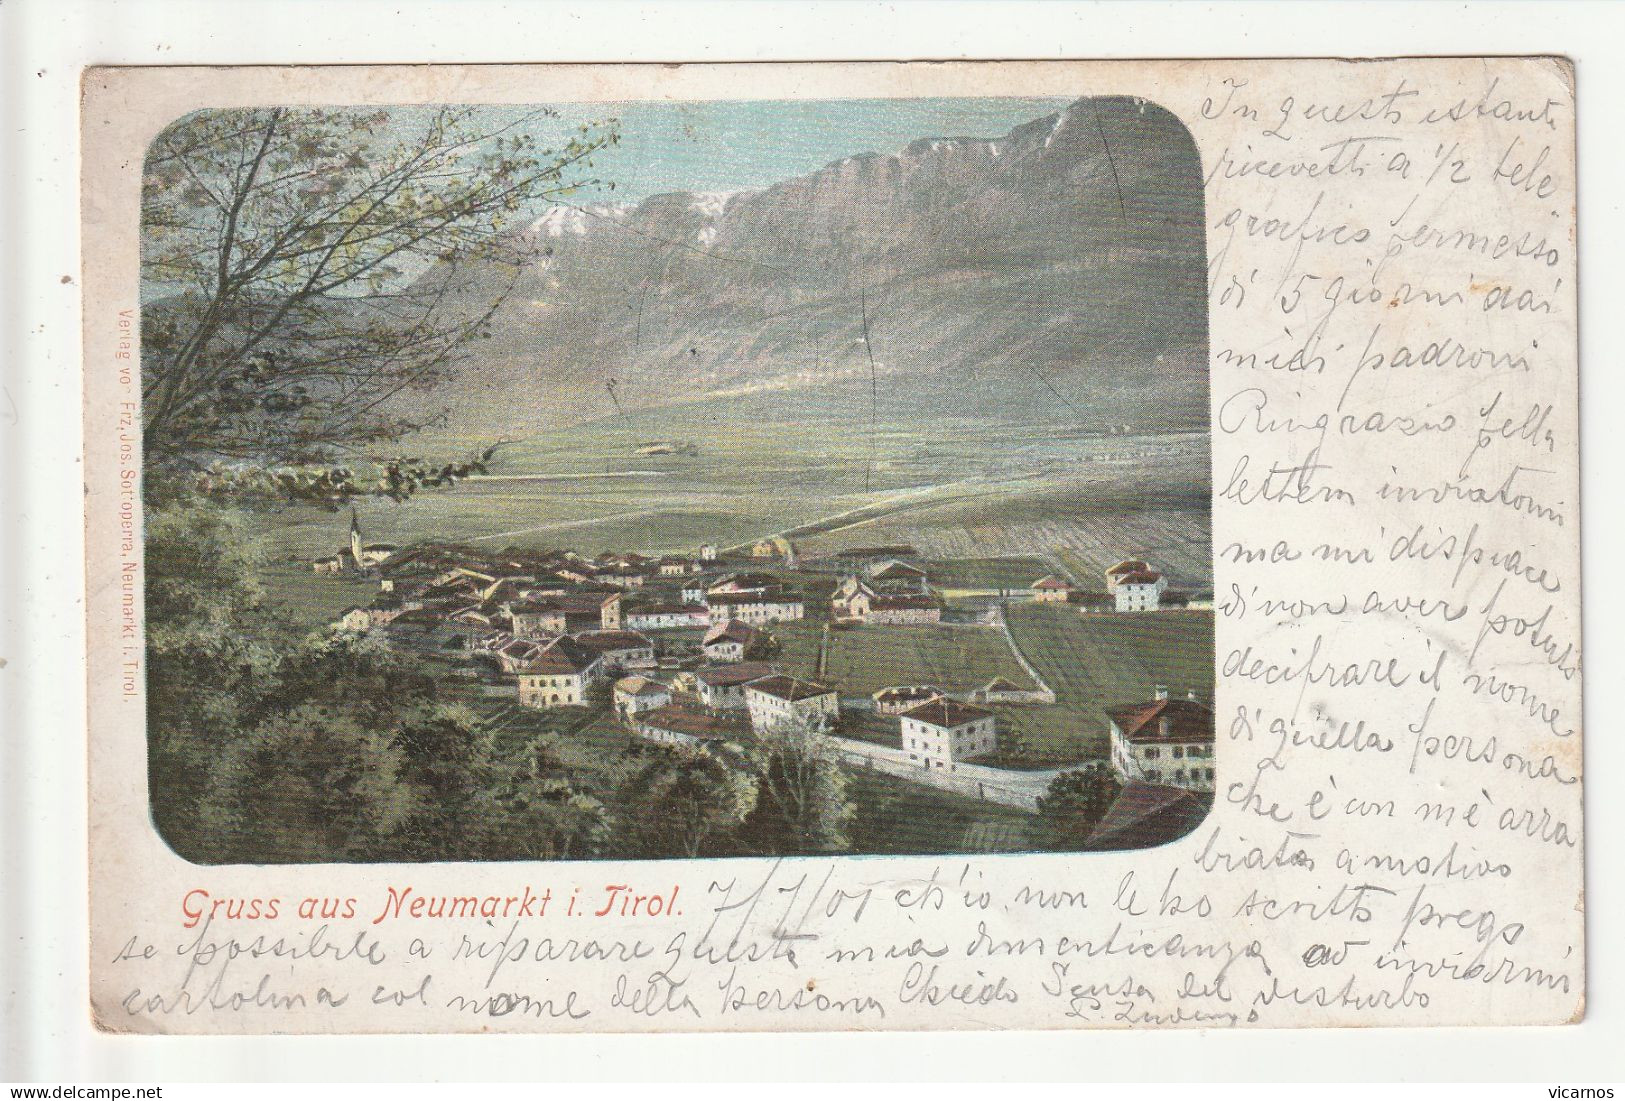 In questi istanti
ricevetti a 1/2 tele
grafico permesso
di 5 giorni dai
miei padroni
Ringrazio pella
lettera inviatomi
ma mi dispiace
di non aver potuto
decifrare il nome
di quella persona
che è con mè arra
biata a motivo
Gruss aus Neumarkt i. Tirol. 7/7/01 ch'io non le ho scritto prego
se possibile a riparare questa mia dimenticanza ad inviarmi
cartolina col nome della persona Chiedo Scusa del disturbo
Verlag von Frz. Jos. Sottoperra, Neumarkt i. Tirol.
delcampe.net
vicarnos